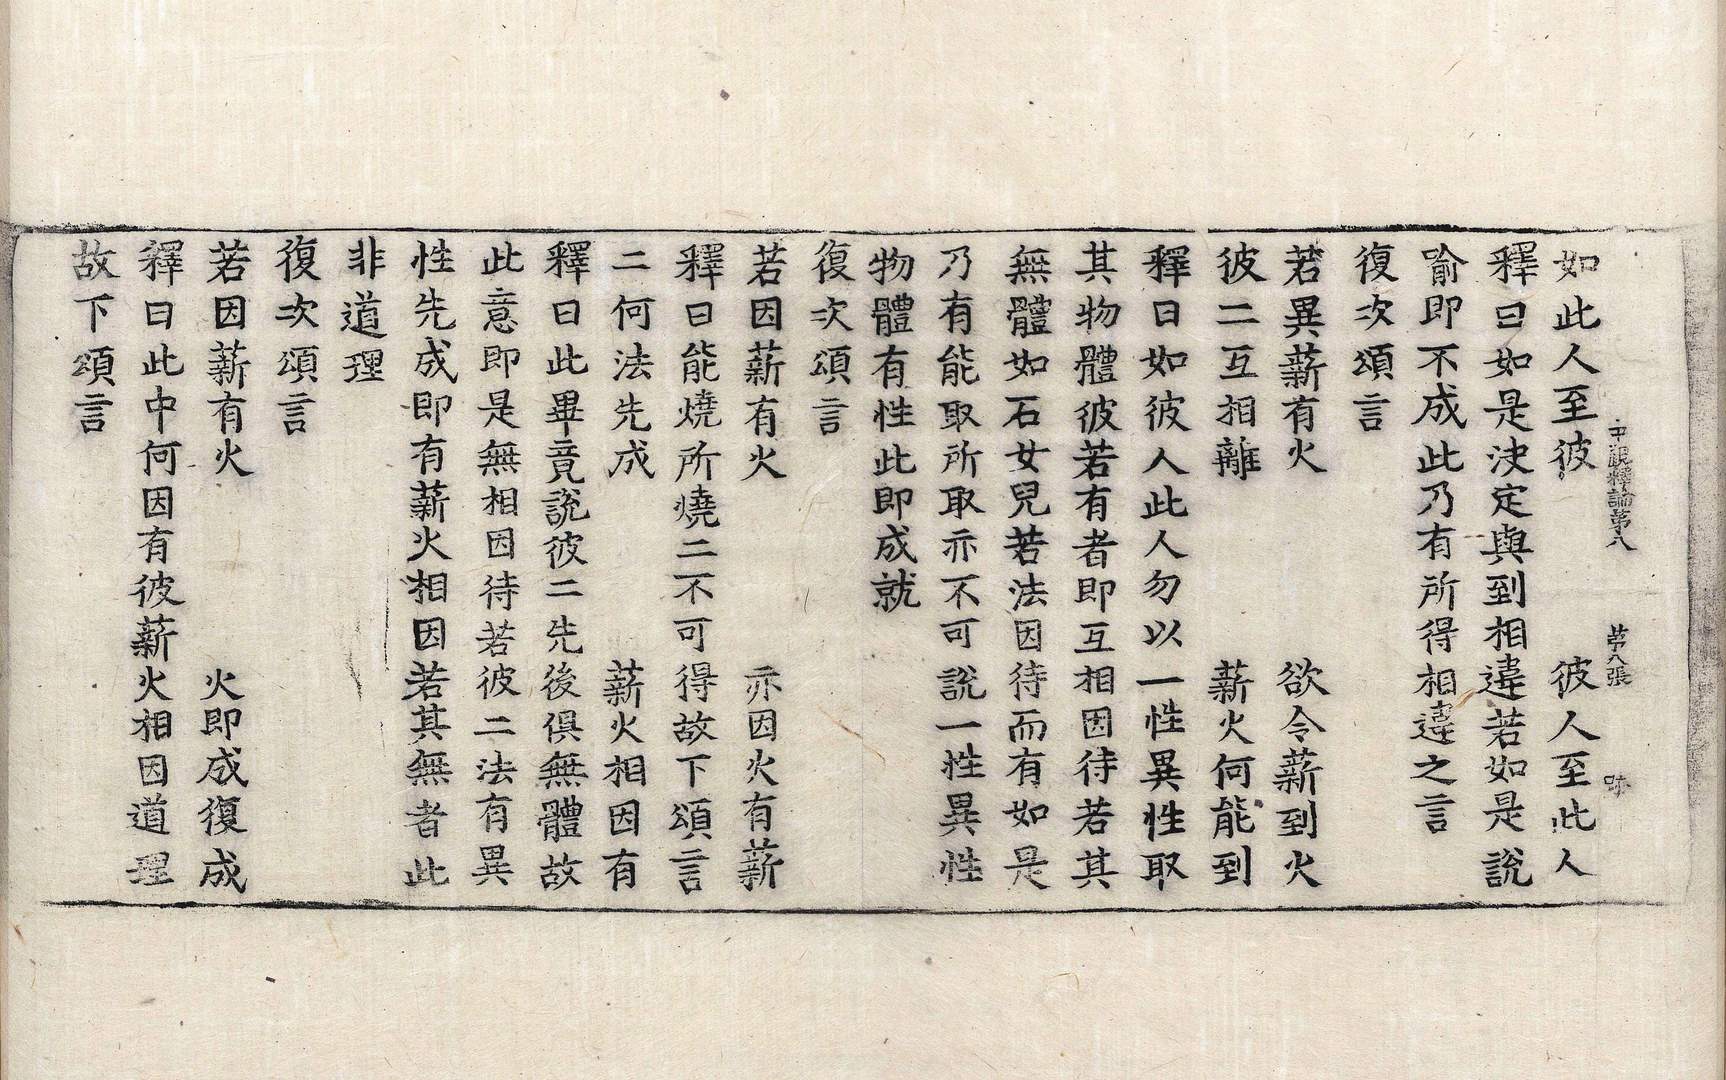 中觀釋論第八 第八張 昃
如此人至彼 彼人至此人
釋曰如是決定與到相違若如是說
喻即不成此乃有所得相違之言
復次頌言
若異薪有火 欲令薪到火
彼二互相離 薪火何能到
釋曰如彼人此人勿以一性異性取
其物體彼若有者即互相因待若其
無體如石女兒若法因待而有如是
乃有能取所取亦不可說一性異性
物體有性此即成就
復次頌言
若因薪有火 亦因火有薪
釋曰能燒所燒二不可得故下頌言
二何法先成 薪火相因有
釋曰此畢竟說彼二先後俱無體故
此意即是無相因待若彼二法有異
性先成即有薪火相因若其無者此
非道理
復次頌言
若因薪有火 火即成復成
釋曰此中何因有彼薪火相因道理
故下頌言